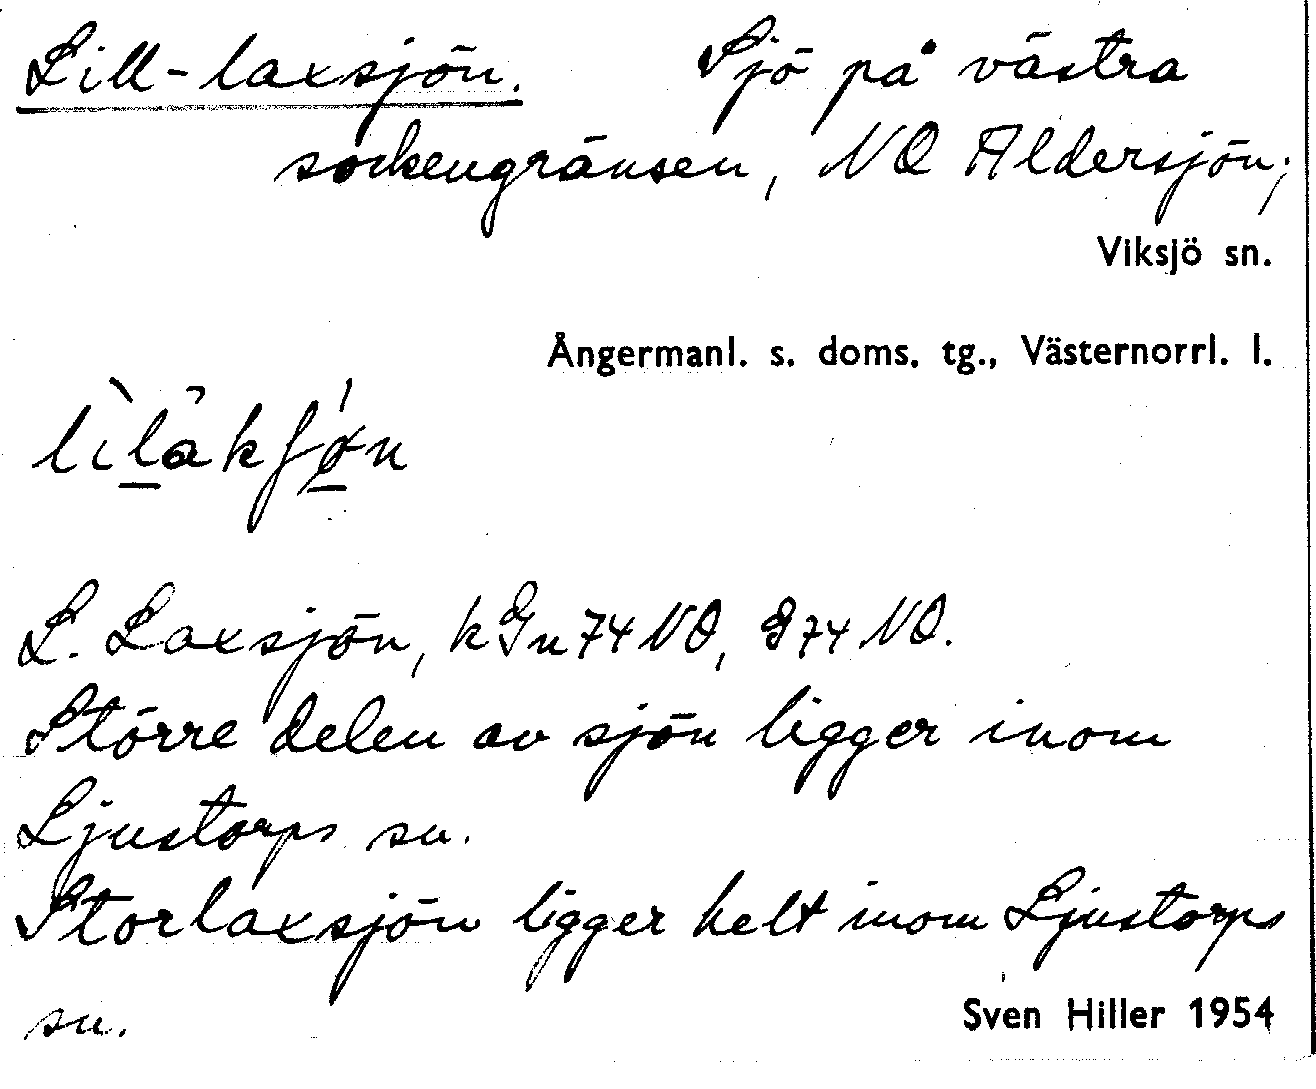 Lill-laxsjön. Sjö på västra
sockengränsen, NO Aldersjön;
Viksjö sn.
Ångermanl. s. doms. tg., Västernorrl. l.
L. Laxsjön, kGn74NO, G74NO.
Större delen av sjön ligger inom
Ljustorps sn.
Storlaxsjön ligger helt inom Ljustorps
sn.
Sven Hiller 1954